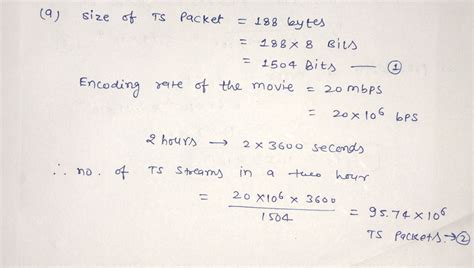 (a) size of TS Packet = 188 bytes
= 188 x 8 Bits
= 1504 Bits — ①
Encoding rate of the movie = 20 mbps
= 20 x 10⁶ bps
2 hours → 2 x 3600 seconds
∴ no. of TS Streams in a two hour
= 20 x 10⁶ x 3600 / 1504 = 95.74 x 10⁶
TS Packets. → ②